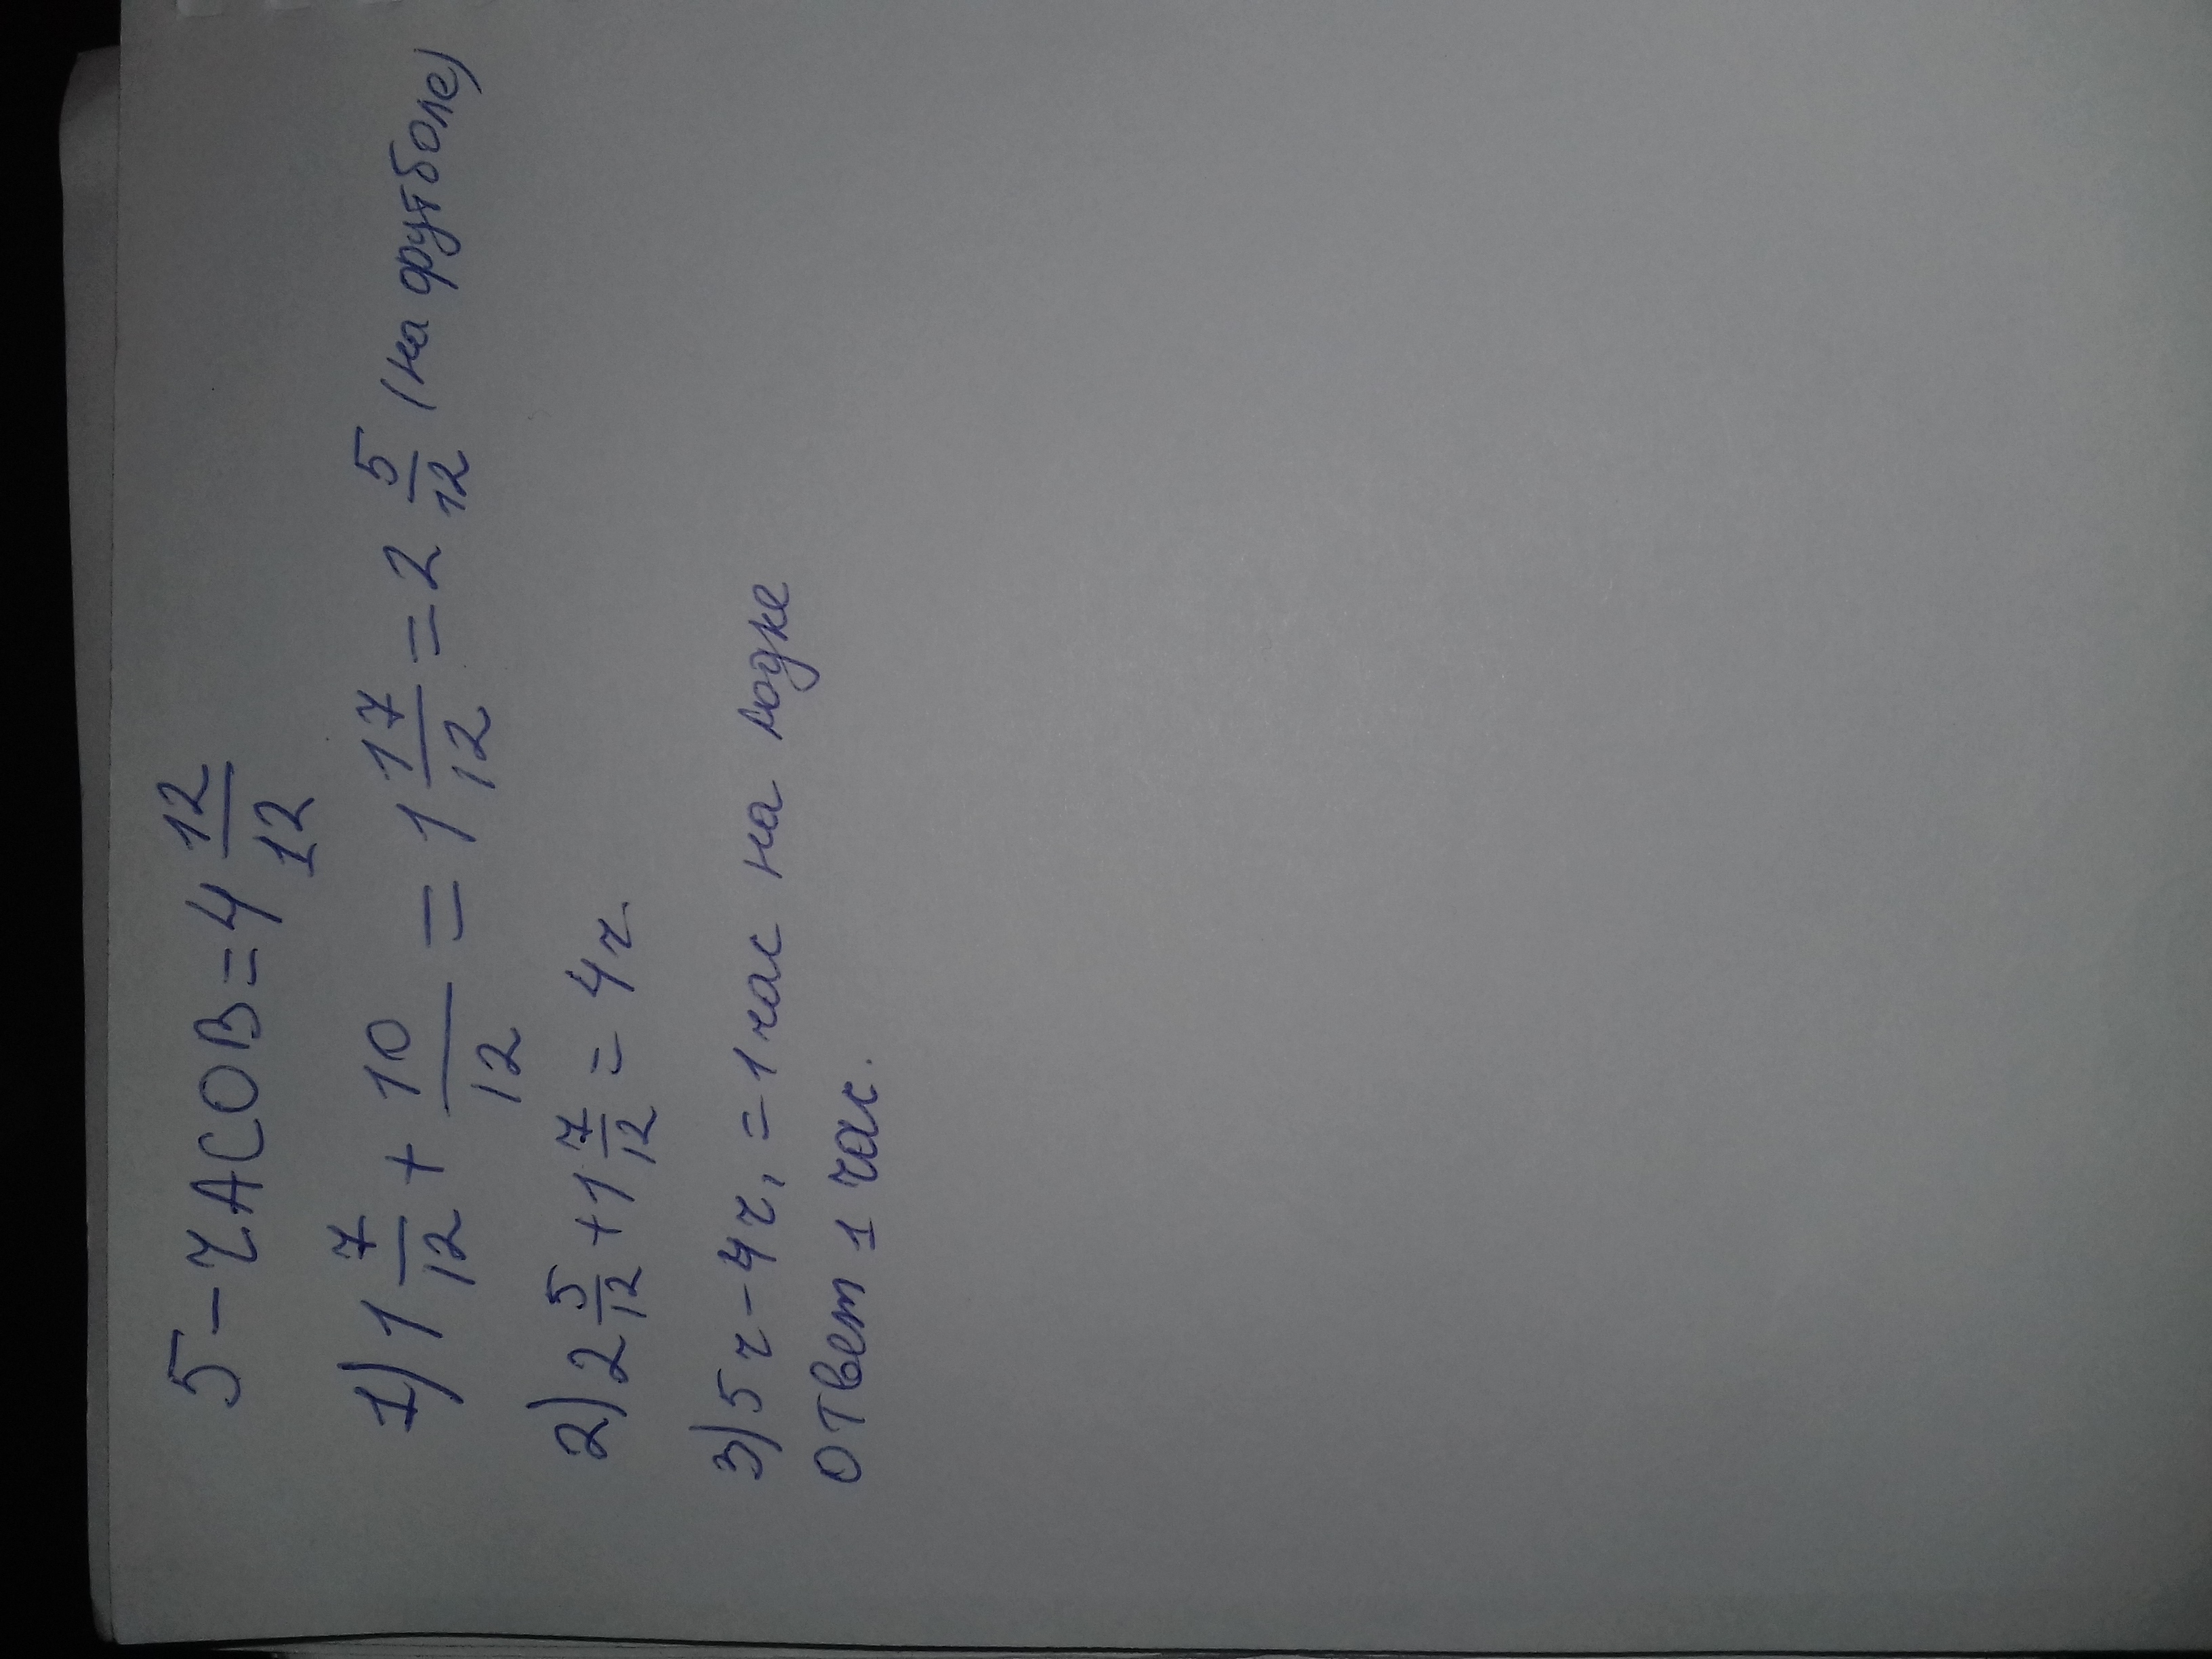 5-ЧАСОВ=4 12/12
1) 1 7/12 + 10/12 = 1 17/12 = 2 5/12 (на футболе)
2) 2 5/12 + 1 7/12 = 4 ч.
3) 5 ч - 4 ч, = 1 час на лодке
ответ 1 час.